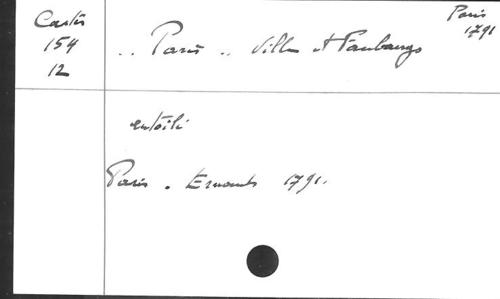 Cartes
154
12
Paris
1791
.. Paris .. Ville et Faubourgs
entoilé
Paris . Esnauts 1791.